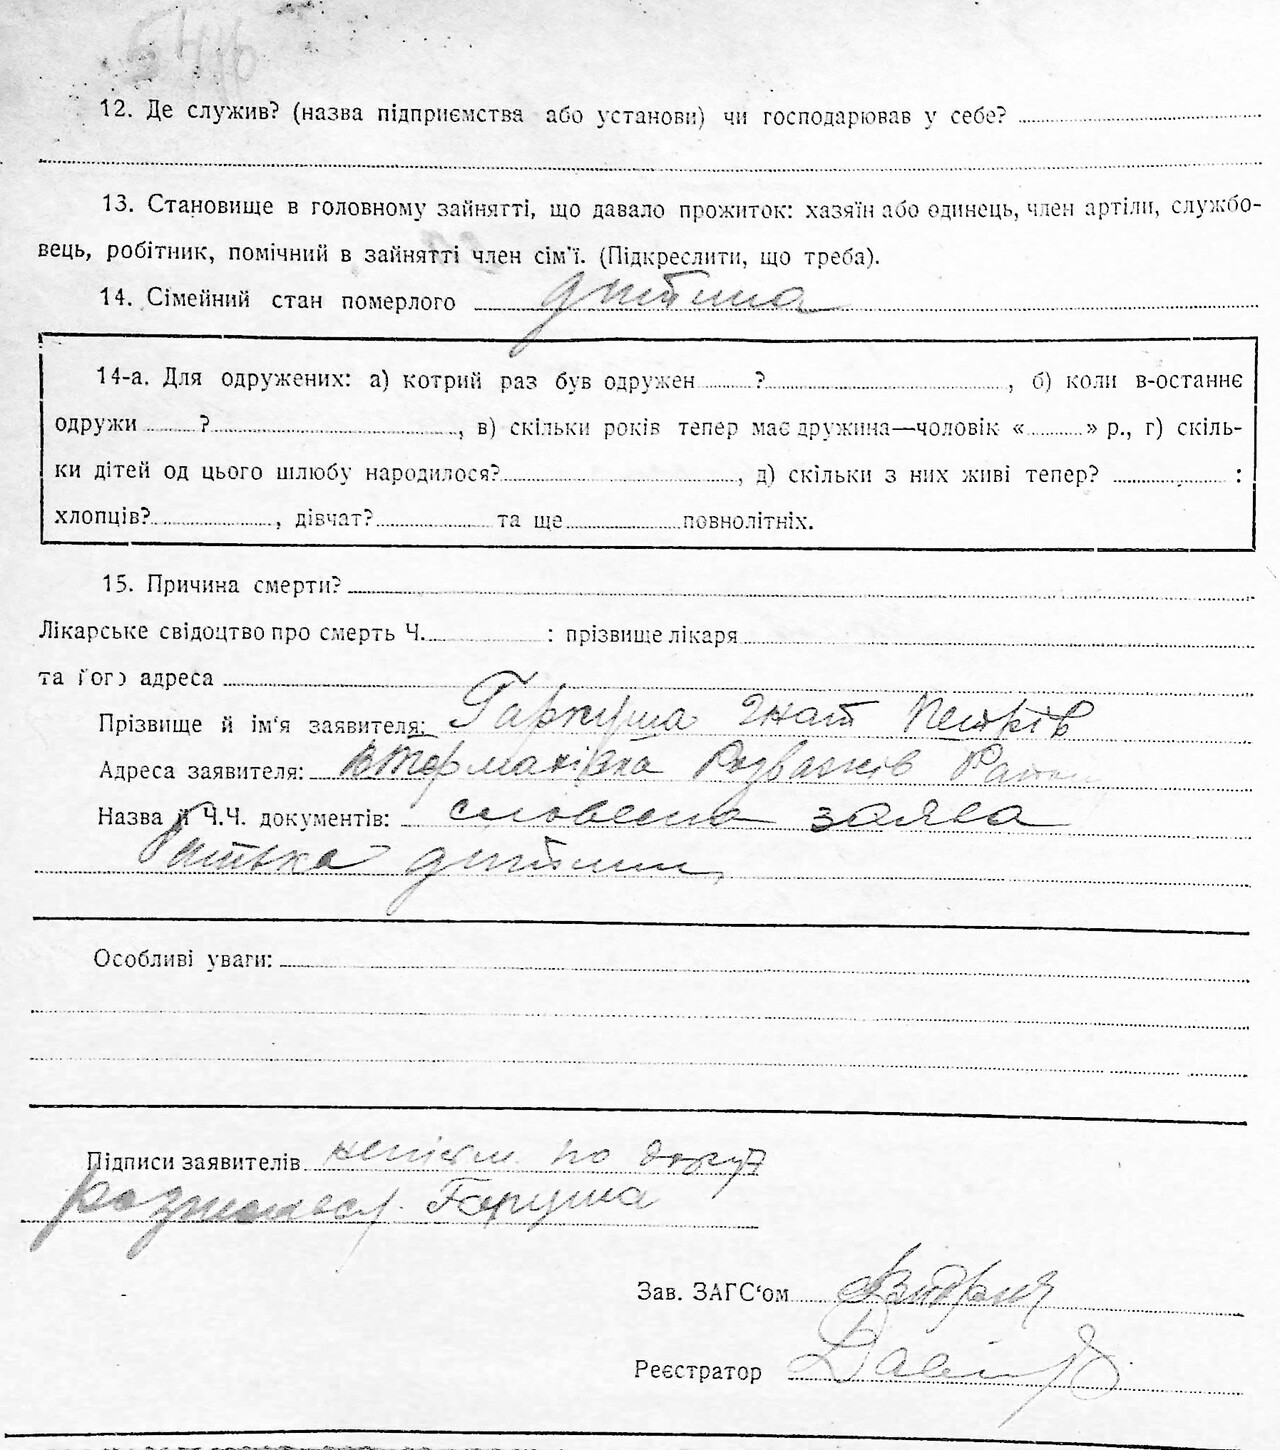 12. Де служив? (назва підприємства або установи) чи господарював у себе?
13. Становище в головному зайнятті, що давало прожиток: хазяїн або одинець, член артіли, службо-
вець, робітник, помічний в зайнятті член сім'ї. (Підкреслити, що треба).
14. Сімейний стан померлого дитина
14-а. Для одружених: а) котрий раз був одружен ? , б) коли в-останнє
одружи ? , в) скільки років тепер має дружина—чоловік « » р., г) скіль-
ки дітей од цього шлюбу народилося? , д) скільки з них живі тепер? :
хлопців? , дівчат? та ще повнолітніх.
15. Причина смерти?
Лікарське свідоцтво про смерть Ч. : прізвище лікаря
та його адреса
Прізвище й ім'я заявителя: Гаркуша Гнат Петрів
Адреса заявителя: Термахівка Розважів Рай
Назва й Ч.Ч. документів: словесна заява
батька дитини
Особливі уваги:
Підписи заявителів по
Гаркуша
Зав. ЗАГС'ом
Реєстратор